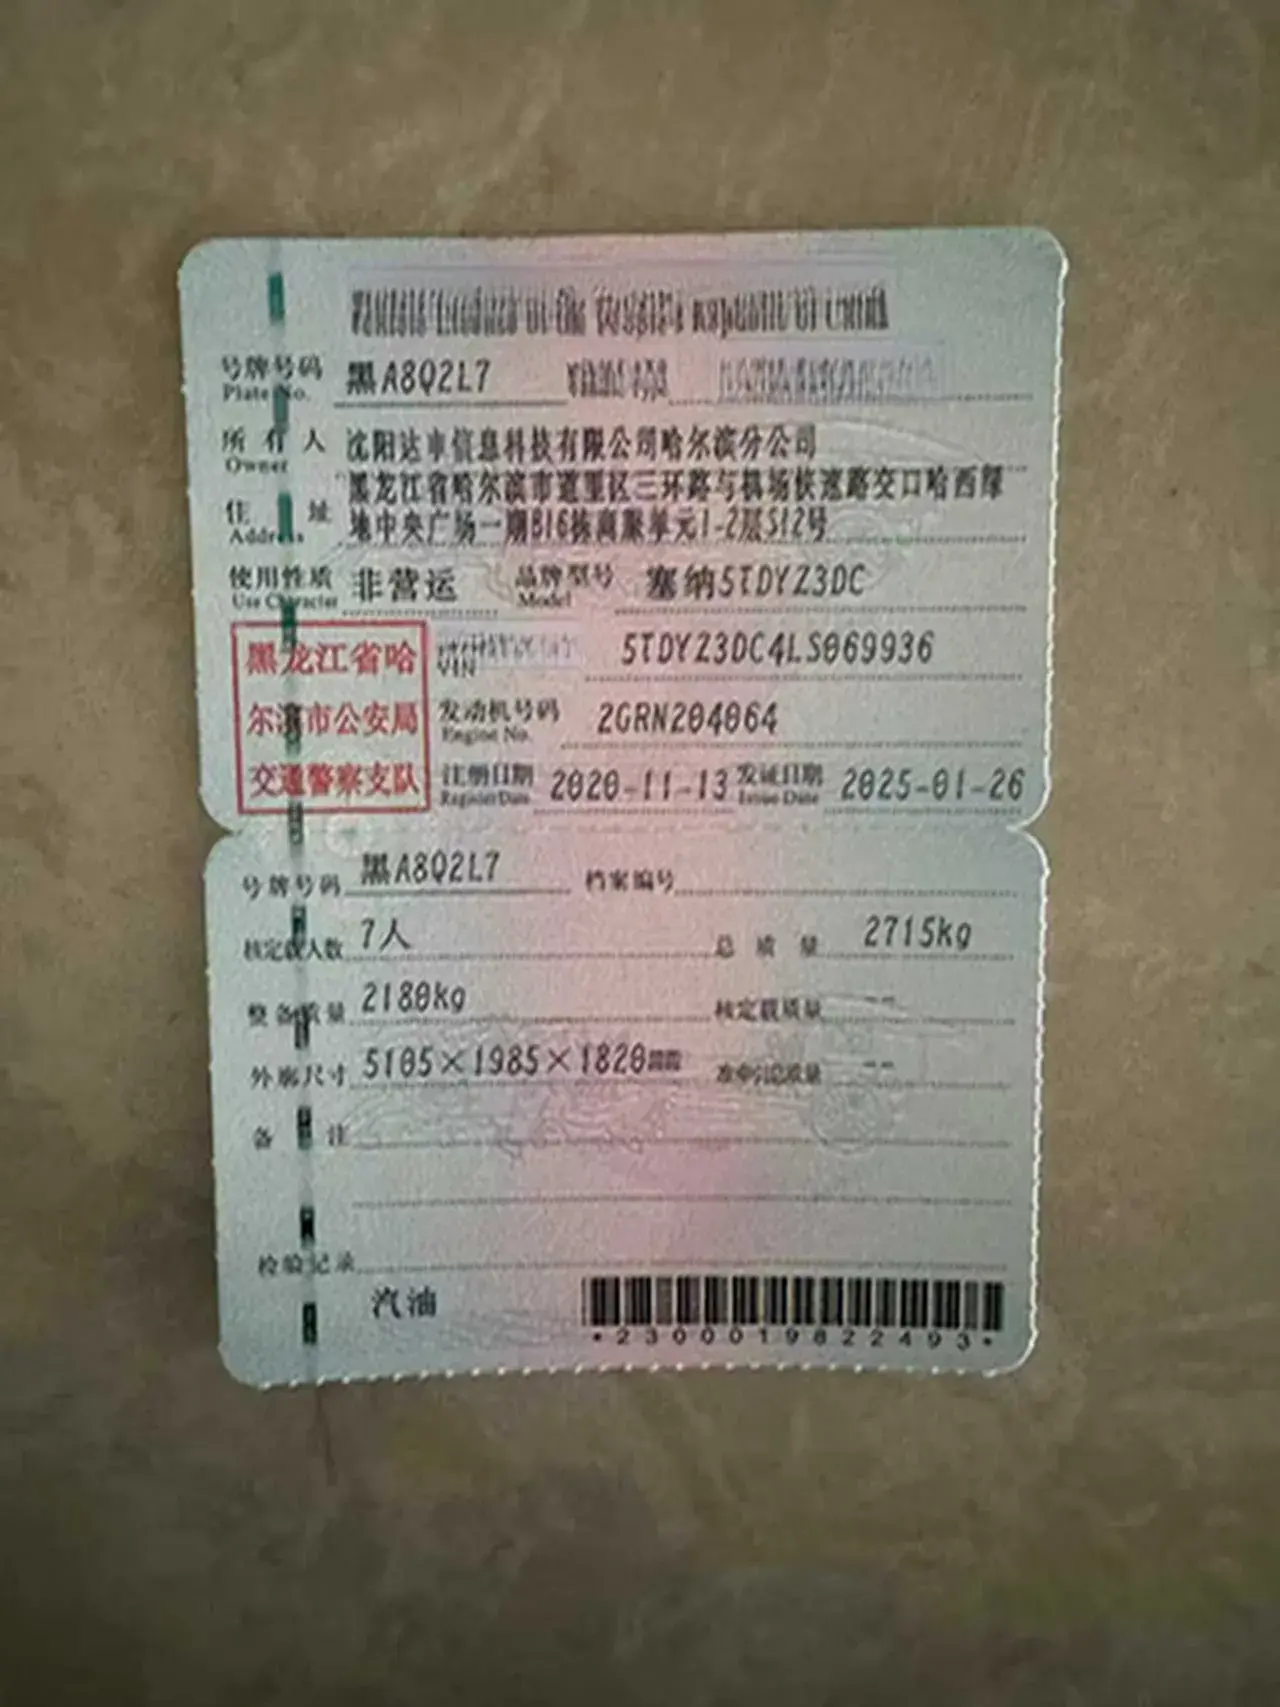 号牌号码 黑A8Q2L7
Plate No.
所有人 沈阳达申信息科技有限公司哈尔滨分公司
Owner
黑龙江省哈尔滨市道里区三环路与机场快速路交口哈西绿
住址 地中央广场一期B16栋商服单元1-2层S12号
Address
使用性质 非营运 品牌型号 塞纳5TDYZ3DC
Use Character Model
黑龙江省哈
尔滨市公安局
交通警察支队
VIN 5TDYZ3DC4LS069936
发动机号码 2GRN204064
Engine No.
注册日期 2020-11-13 发证日期 2025-01-26
Register Date Issue Date
号牌号码 黑A8Q2L7 档案编号
核定载人数 7人 总质量 2715kg
整备质量 2180kg 核定载质量 --
外廓尺寸 5105×1985×1820 准牵引总质量 --
备注
检验记录
汽油
*2300019822493*